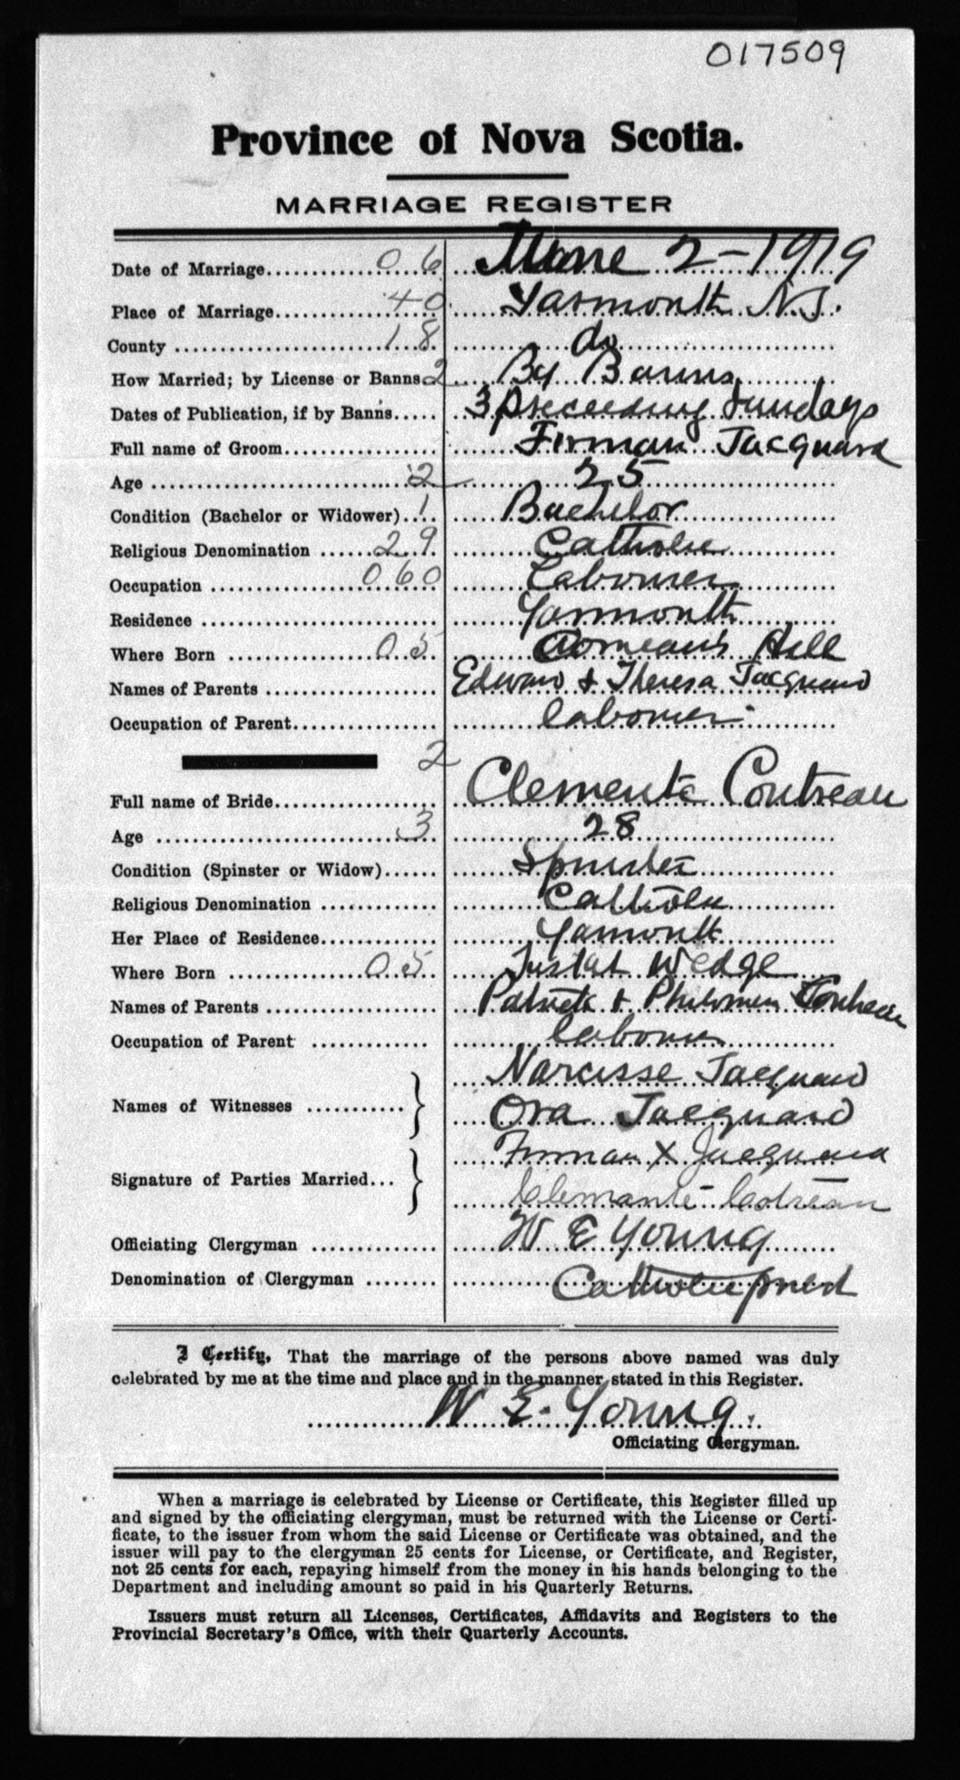 017509
Province of Nova Scotia.
MARRIAGE REGISTER
Date of Marriage 06 June 2-1919
Place of Marriage 40 Yarmouth N.S.
County 18 do
How Married; by License or Banns 2 By Banns
Dates of Publication, if by Banns 3 preceeding Sundays
Full name of Groom Firman Jacquard
Age 2 25
Condition (Bachelor or Widower) 1 Bachelor
Religious Denomination 29 Catholic
Occupation 060 Labourer
Residence Yarmouth
Where Born 05 Comeau's Hill
Names of Parents Edward & Theresa Jacquard
Occupation of Parent labourer
2
Full name of Bride Clemente Coutreau
Age 3 28
Condition (Spinster or Widow) Spinster
Religious Denomination Catholic
Her Place of Residence Yarmouth
Where Born 05 Tusket Wedge
Names of Parents Patrick & Philomen
Occupation of Parent labourer
Names of Witnesses Narcisse Jacquard
Ora Jacquard
Signature of Parties Married Firman X Jacquard
Clemante
Officiating Clergyman W E Young
Denomination of Clergyman Catholic priest
I Certify, That the marriage of the persons above named was duly
celebrated by me at the time and place and in the manner stated in this Register.
W E. Young.
Officiating Clergyman.
When a marriage is celebrated by License or Certificate, this Register filled up
and signed by the officiating clergyman, must be returned with the License or Certi-
ficate, to the issuer from whom the said License or Certificate was obtained, and the
issuer will pay to the clergyman 25 cents for License, or Certificate, and Register,
not 25 cents for each, repaying himself from the money in his hands belonging to the
Department and including amount so paid in his Quarterly Returns.
Issuers must return all Licenses, Certificates, Affidavits and Registers to the
Provincial Secretary's Office, with their Quarterly Accounts.